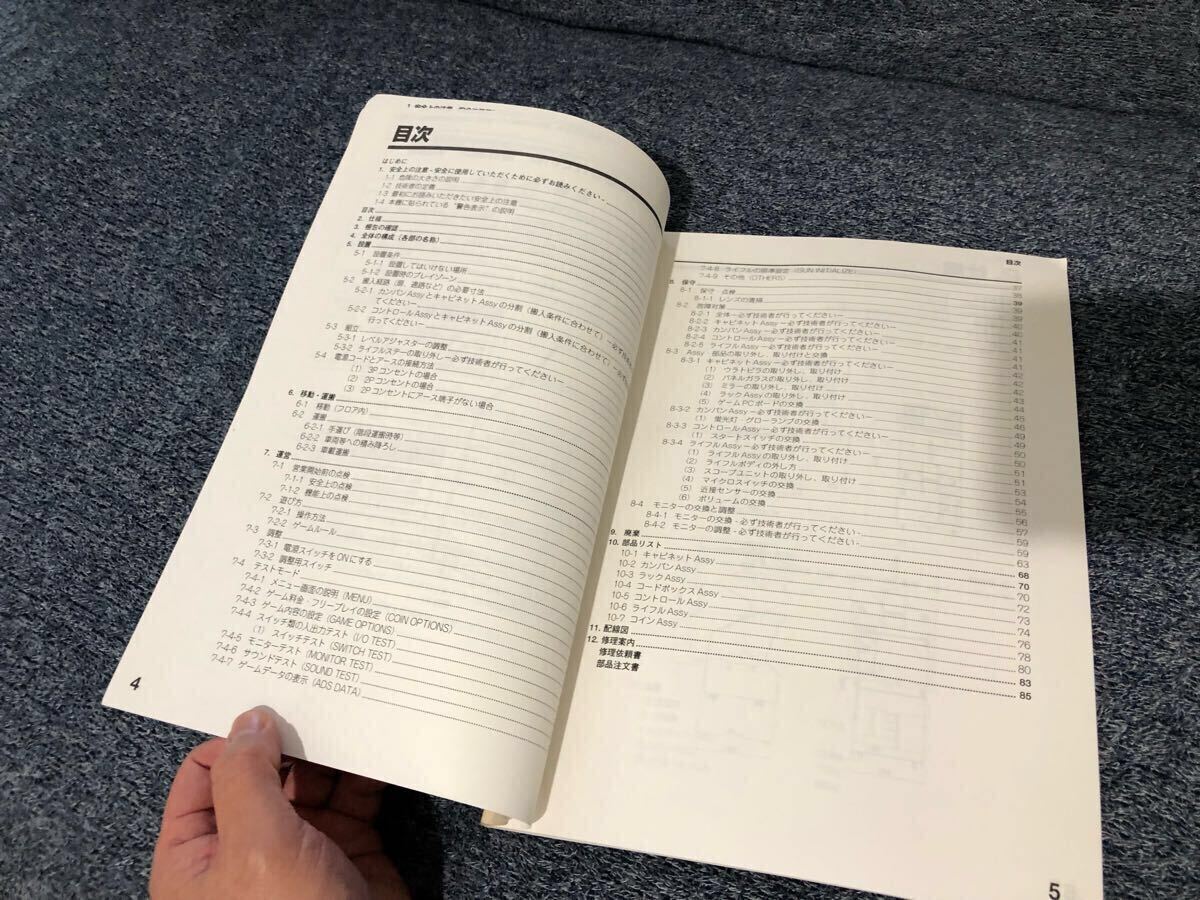 目次
はじめに
1. 安全上の注意 - 安全に使用していただくために必ずお読みください -
1-1 危険の大きさの説明
1-2 技術者の定義
1-3 最初にお読みいただきたい安全上の注意
1-4 本機に貼られている“警告表示”の説明
目次
2. 仕様
3. 梱包の確認
4. 全体の構成（各部の名称）
5. 設置
5-1 設置条件
5-1-1 設置してはいけない場所
5-1-2 設置時のプレイゾーン
5-2 搬入経路（扉、通路など）の必要寸法
5-2-1 カンバンAssyとキャビネットAssyの分割（搬入条件に合わせて）－必ず技術
てください－
5-2-2 コントロールAssyとキャビネットAssyの分割（搬入条件に合わせて）－必ず
行ってください－
5-3 組立
5-3-1 レベルアジャスターの調整
5-3-2 ライフルステーの取り外し－必ず技術者が行ってください－
5-4 電源コードとアースの接続方法
（1） 3Pコンセントの場合
（2） 2Pコンセントの場合
（3） 2Pコンセントにアース端子がない場合
6. 移動・運搬
6-1 移動（フロア内）
6-2 運搬
6-2-1 手運び（階段運搬時等）
6-2-2 車両等への積み降ろし
6-2-3 車載運搬
7. 運営
7-1 営業開始前の点検
7-1-1 安全上の点検
7-1-2 機能上の点検
7-2 遊び方
7-2-1 操作方法
7-2-2 ゲームルール
7-3 調整
7-3-1 電源スイッチをONにする
7-3-2 調整用スイッチ
7-4 テストモード
7-4-1 メニュー画面の説明（MENU）
7-4-2 ゲーム料金・フリープレイの設定（COIN OPTIONS）
7-4-3 ゲーム内容の設定（GAME OPTIONS）
7-4-4 スイッチ類の入出力テスト（I/O TEST）
（1） スイッチテスト（SWITCH TEST）
7-4-5 モニターテスト（MONITOR TEST）
7-4-6 サウンドテスト（SOUND TEST）
7-4-7 ゲームデータの表示（ADS DATA）
4
目次
7-4-8 ライフルの標準設定（GUN INITIALIZE）
7-4-9 その他（OTHERS） 37
8. 保守 38
8-1 保守・点検 39
8-1-1 レンズの清掃 39
8-2 故障対策 39
8-2-1 全体－必ず技術者が行ってください－ 40
8-2-2 キャビネットAssy－必ず技術者が行ってください－ 40
8-2-3 カンバンAssy－必ず技術者が行ってください－ 41
8-2-4 コントロールAssy－必ず技術者が行ってください－ 41
8-2-5 ライフルAssy－必ず技術者が行ってください－ 41
8-3 Assy・部品の取り外し、取り付けと交換 42
8-3-1 キャビネットAssy－必ず技術者が行ってください－ 42
（1） ウラトビラの取り外し、取り付け 42
（2） パネルガラスの取り外し、取り付け 42
（3） ミラーの取り外し、取り付け 43
（4） ラックAssyの取り外し、取り付け 44
（5） ゲームPCボードの交換 45
8-3-2 カンバンAssy－必ず技術者が行ってください－ 46
（1） 蛍光灯・グローランプの交換 46
8-3-3 コントロールAssy－必ず技術者が行ってください－ 49
（1） スタートスイッチの交換 49
8-3-4 ライフルAssy－必ず技術者が行ってください－ 50
（1） ライフルAssyの取り外し、取り付け 50
（2） ライフルボディの外し方 51
（3） スコープユニットの取り外し、取り付け 51
（4） マイクロスイッチの交換 53
（5） 近接センサーの交換 54
（6） ボリュームの交換 55
8-4 モニターの交換と調整 56
8-4-1 モニターの交換 - 必ず技術者が行ってください - 57
8-4-2 モニターの調整 - 必ず技術者が行ってください - 59
9. 廃棄 63
10. 部品リスト 68
10-1 キャビネットAssy 70
10-2 カンバンAssy 70
10-3 ラックAssy 72
10-4 コードボックスAssy 73
10-5 コントロールAssy 74
10-6 ライフルAssy 76
10-7 コインAssy 78
11. 配線図 80
12. 修理案内 83
修理依頼書 85
部品注文書
5